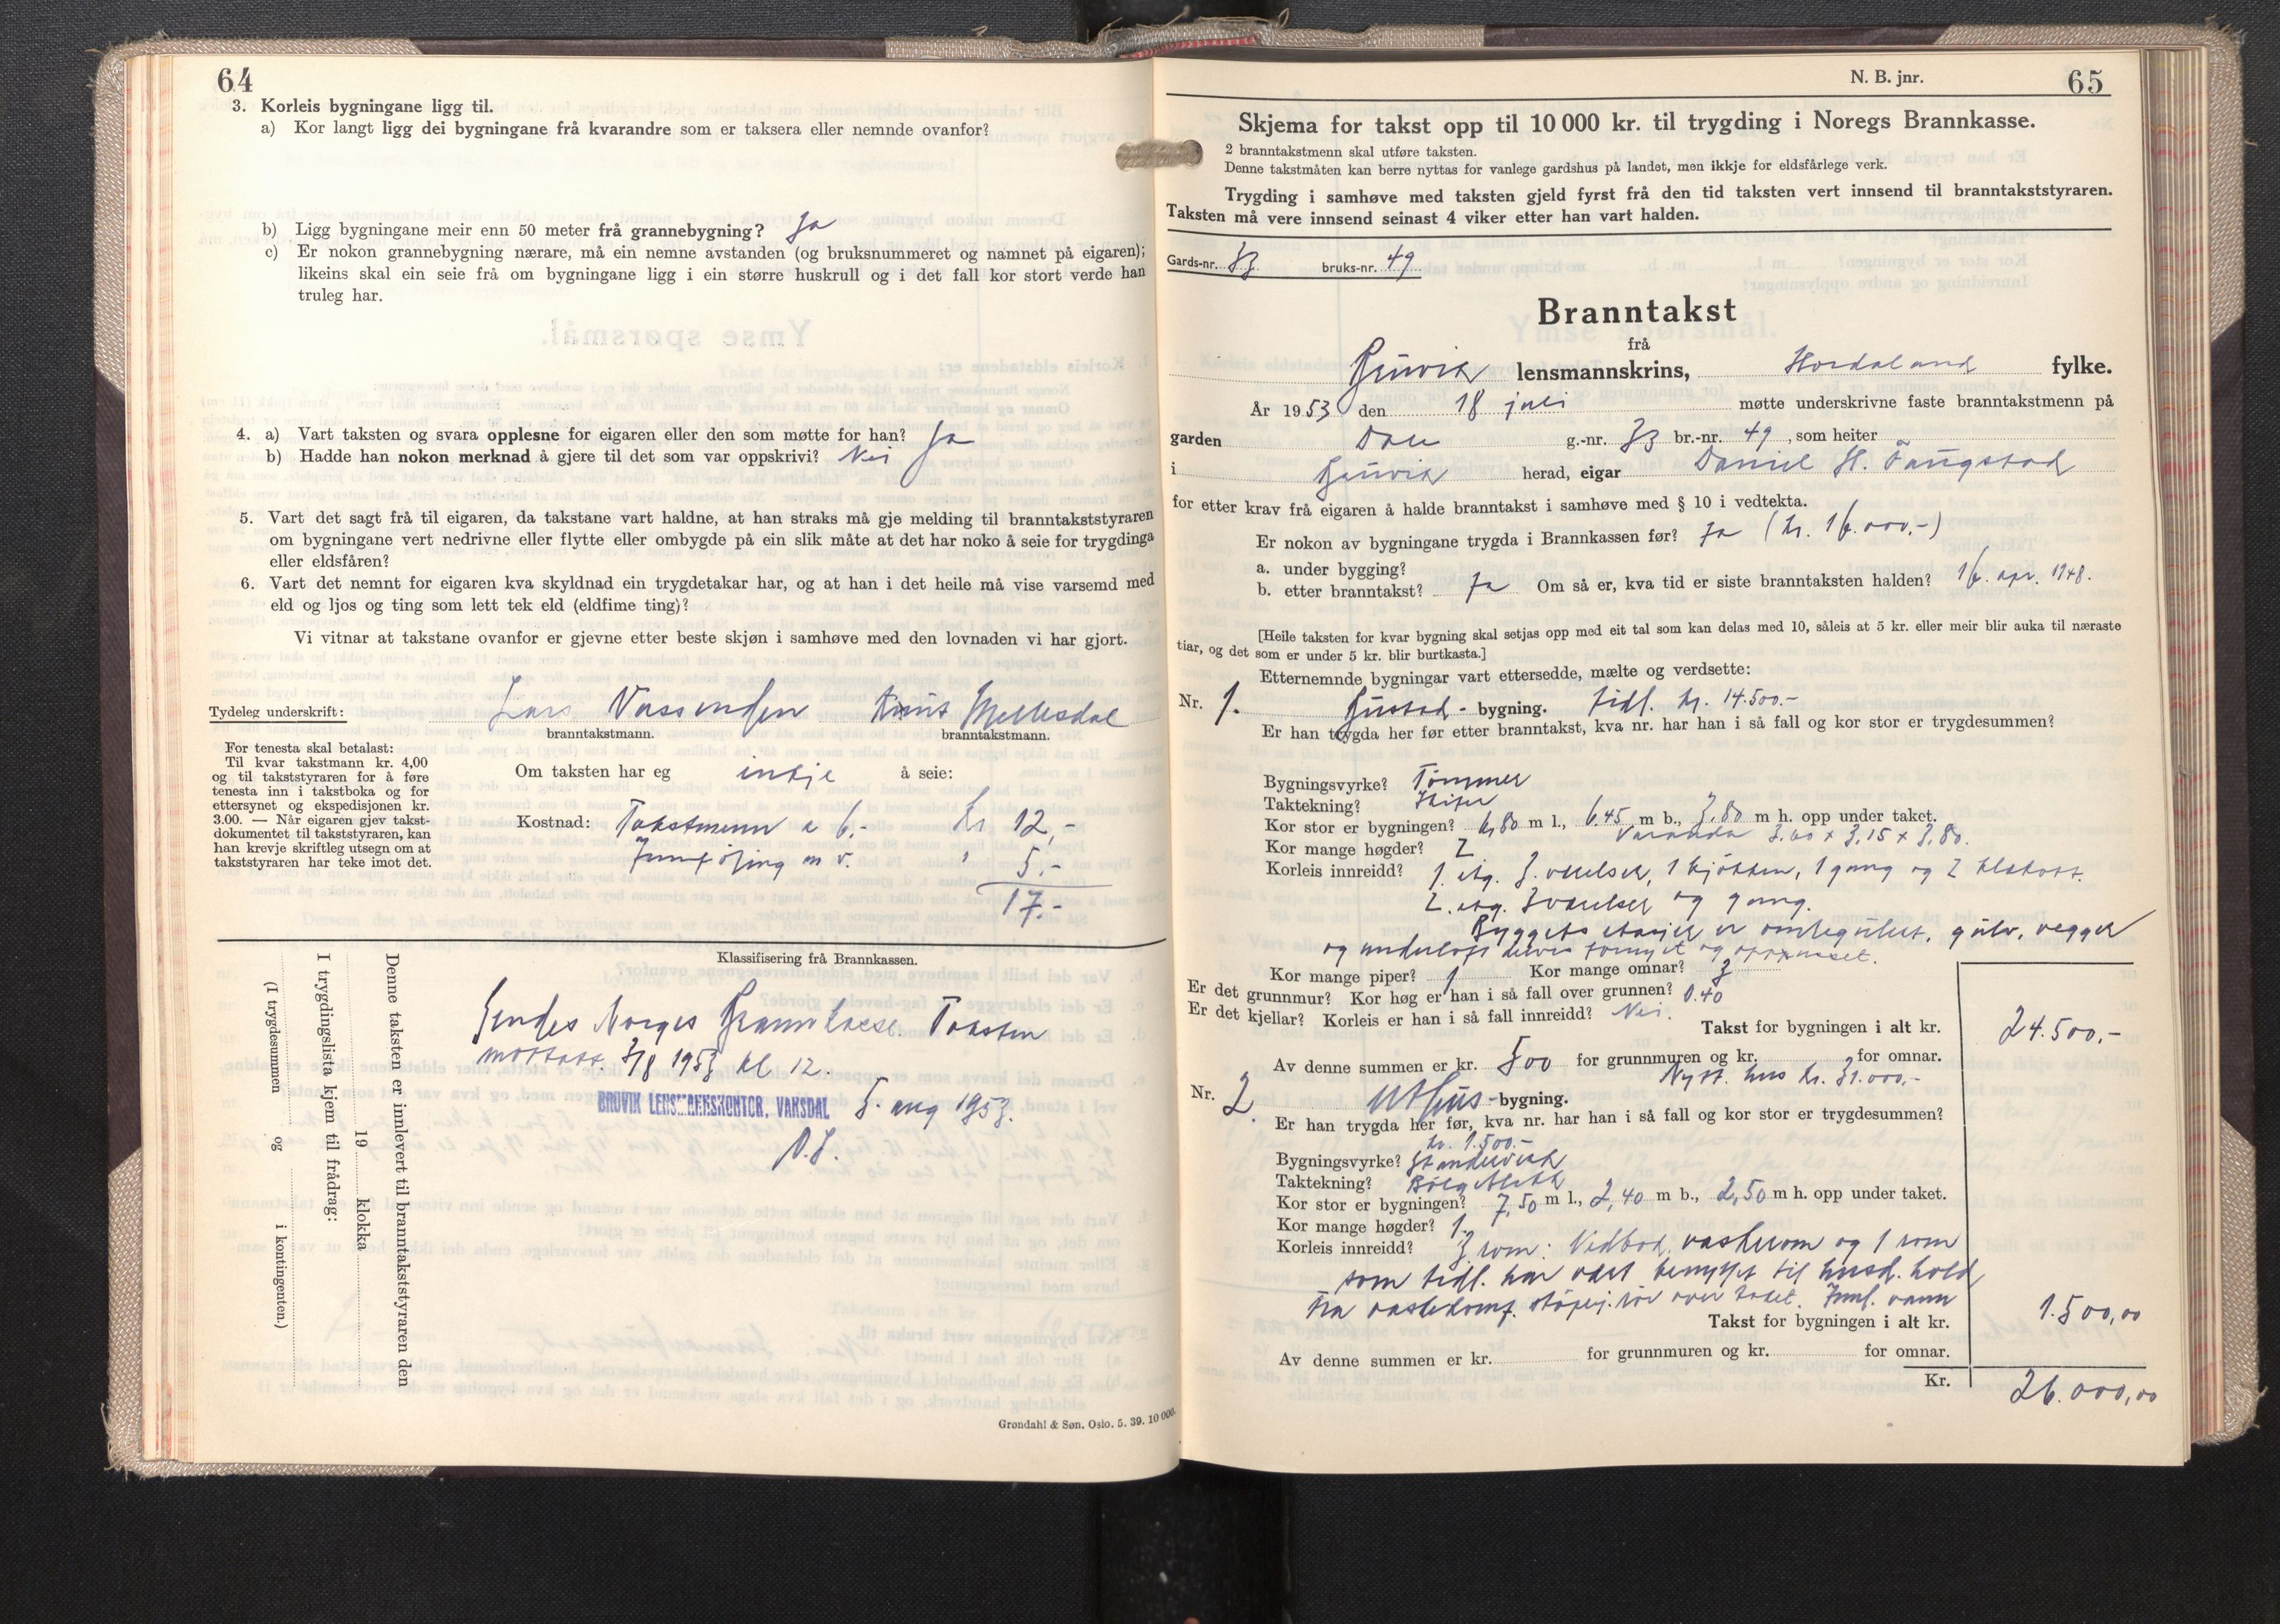 64
3. Korleis bygningane ligg til.
a) Kor langt ligg dei bygningane frå kvarandre som er taksera eller nemnde ovanfor?
b) Ligg bygningane meir enn 50 meter frå grannebygning? Ja
c) Er nokon grannebygning nærare, må ein nemne avstanden (og bruksnummeret og namnet på eigaren);
likeins skal ein seie frå om bygningane ligg i ein større huskrull og i det fall kor stort verde han
truleg har.
4. a) Vart taksten og svara opplesne for eigaren eller den som møtte for han? Ja
b) Hadde han nokon merknad å gjere til det som var oppskrivi? Nei
5. Vart det sagt frå til eigaren, da takstane vart haldne, at han straks må gje melding til branntakststyraren
om bygningane vert nedrivne eller flytte eller ombygde på ein slik måte at det har noko å seie for trygdinga
eller eldsfåren?
6. Vart det nemnt for eigaren kva skyldnad ein trygdetakar har, og at han i det heile må vise varsemd med
eld og ljos og ting som lett tek eld (eldfime ting)?
Vi vitnar at takstane ovanfor er gjevne etter beste skjøn i samhøve med den lovnaden vi har gjort.
Tydeleg underskrift: Lars Vassenden Knut Mellesdal
branntakstmann. branntakstmann.
For tenesta skal betalast:
Til kvar takstmann kr. 4,00
og til takststyraren for å føre
tenesta inn i takstboka og for
ettersynet og ekspedisjonen kr.
3.00. — Når eigaren gjev takst-
dokumentet til takststyraren, kan
han krevje skriftleg utsegn om at
takststyraren har teke imot det.
Om taksten har eg inkje å seie:
Kostnad: Takstmenn a 6.- kr 12,-
Innføring m v. " 5.-
17.-
Klassifisering frå Brannkassen.
Sendes Norges Brannkasse. Taksten
mottatt 3/8 1953 kl 12.
BRUVIK LENSMANNSKONTOR, VAKSDAL 5. aug 1953.
Denne taksten er innlevert til branntakststyraren den
19 klokka
I trygdingslista kjem til frådrag:
(I trygdesummen og i kontingenten.)
Grøndahl & Søn, Oslo. 5. 39. 10 000.
N. B. jnr. 65
Skjema for takst opp til 10 000 kr. til trygding i Noregs Brannkasse.
2 branntakstmenn skal utføre taksten.
Denne takstmåten kan berre nyttas for vanlege gardshus på landet, men ikkje for eldsfårlege verk.
Trygding i samhøve med taksten gjeld fyrst frå den tid taksten vert innsend til branntakststyraren.
Taksten må vere innsend seinast 4 viker etter han vart halden.
Gards-nr. 33 bruks-nr. 49
Branntakst
frå
Bruvik lensmannskrins, Hordaland fylke.
År 1953 den 18 juli møtte underskrivne faste branntakstmenn på
garden Dale g.-nr. 33 br.-nr. 49, som heiter
i Bruvik herad, eigar Daniel H. Faugstad
for etter krav frå eigaren å halde branntakst i samhøve med § 10 i vedtekta.
Er nokon av bygningane trygda i Brannkassen før? Ja (kr. 16.000,-)
a. under bygging?
b. etter branntakst? Ja Om så er, kva tid er siste branntaksten halden? 16. apr. 1948.
[Heile taksten for kvar bygning skal setjas opp med eit tal som kan delas med 10, såleis at 5 kr. eller meir blir auka til næraste
tiar, og det som er under 5 kr. blir burtkasta.]
Etternemnde bygningar vart ettersedde, mælte og verdsette:
Nr. 1. Bustad - bygning. tidl. kr. 14.500.-
Er han trygda her før etter branntakst, kva nr. har han i så fall og kor stor er trygdesummen?
Bygningsvyrke? Tømmer
Taktekning? Skifer
Kor stor er bygningen? 6,80 m l., 6,45 m b., 3,80 m h. opp under taket.
Kor mange høgder? 2 Varanda 3.60 x 3,15 x 3,80.
Korleis innreidd? 1. etg. 3. værelser, 1 kjøkken, 1 gang og 2 kleskott.
2. etg. 3 værelser og gang.
Byggets etasjer er omregulert, gulv, vegger
og underloft delvis fornyet og oppusset.
Kor mange piper? 1 Kor mange omnar? 3
Er det grunnmur? Kor høg er han i så fall over grunnen? 0.40
Er det kjellar? Korleis er han i så fall innreidd? Nei.
Takst for bygningen i alt kr. 24.500,-
Av denne summen er kr. 500 for grunnmuren og kr. for omnar.
Nytt. hus kr. 31.000,-
Nr. 2. Uthus-bygning.
Er han trygda her før, kva nr. har han i så fall og kor stor er trygdesummen?
kr. 1.500.-
Bygningsvyrke? Standerverk
Taktekning? Bølgeblekk
Kor stor er bygningen? 7,50 m l., 2,40 m b., 2,50 m h. opp under taket.
Kor mange høgder? 1.
Korleis innreidd? 3 rom: Vedbod, vaskerom og 1 rom
som tidl. har vært benyttet til husd. hold
Fra vaskekomf. støpej. rør over taket. Innl. vann
Takst for bygningen i alt kr. 1.500,00
Av denne summen er kr. for grunnmuren og kr. for omnar.
Kr. 26.000,00